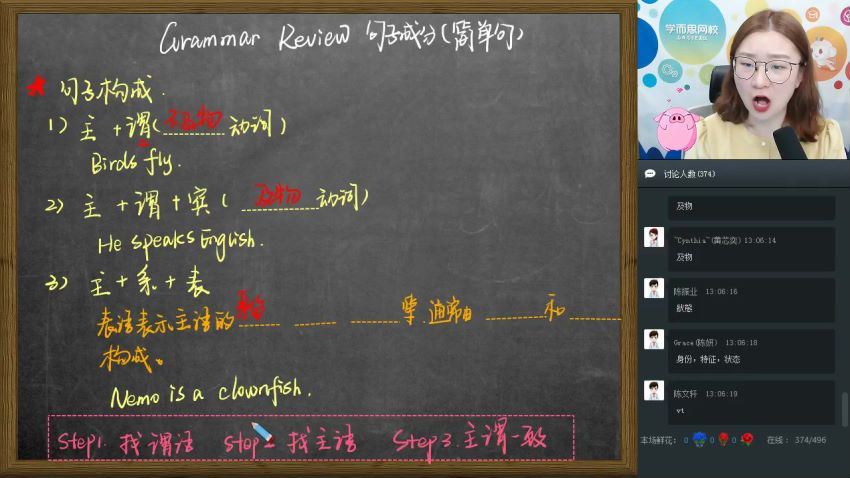 Grammar Review 句子成分(简单句)
句子构成.
1) 主 + 谓(不及物动词)
Birds fly.
2) 主 + 谓 + 宾(及物动词)
He speaks English.
3) 主 + 系 + 表
表语表示主语的 等.通常由 和
构成。
Nemo is a clownfish.
Step1. 找谓语 Step2 找主语 Step3.主谓一致
学而思网校
讨论人数(374)
及物
"Cynthia"(黄芯奕) 13:06:14
及物
陈振业 13:06:16
状态
Grace(陈妍) 13:06:18
身份，特征，状态
陈文轩 13:06:19
vt
本场鲜花: 0 0 0 在线: 374/496